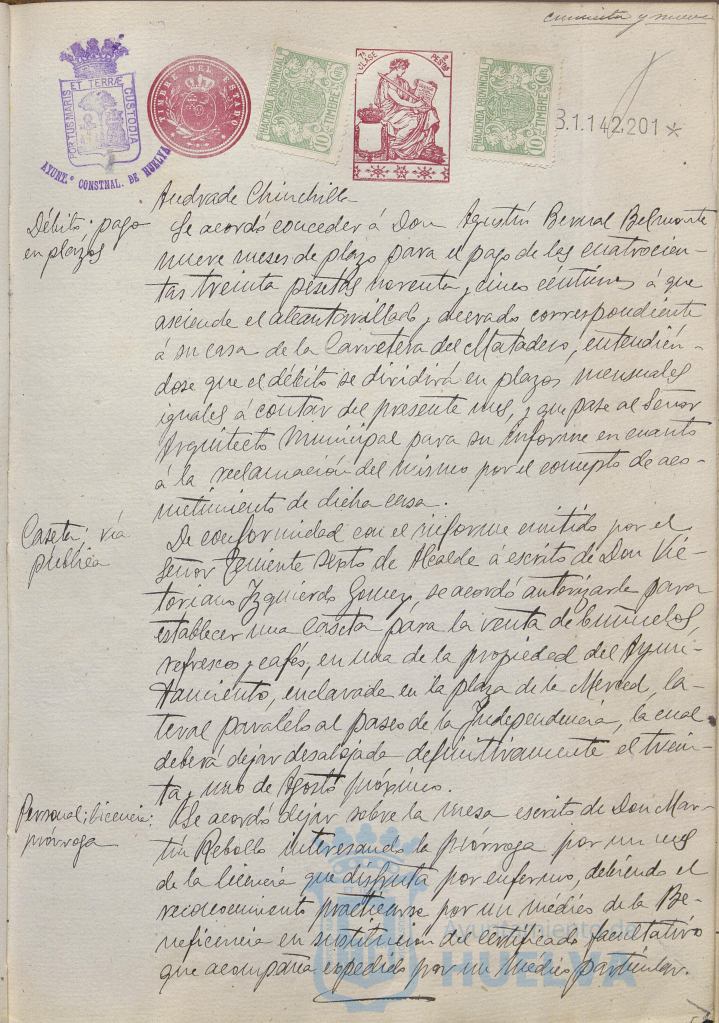 cincuenta y nueve
PORTUS MARIS ET TERRÆ CUSTODIA
AYUNT.º CONSTNAL. DE HUELVA
TIMBRE DEL ESTADO
HACIENDA PROVINCIAL
TIMBRE
10 Cts
7ª CLASE
PESETAS
HACIENDA PROVINCIAL
TIMBRE
10 Cts
B.1.142.201 *
Andrade Chinchilla
Débito; pago
en plazos
Se acordó conceder á Don Agustín Bernal Belmonte
nueve meses de plazo para el pago de las cuatrocien-
tas treinta pesetas noventa y cinco céntimos á que
asciende el alcantarillado y acerado correspondiente
á su casa de la Carretera del Matadero, entendién-
dose que el débito se dividirá en plazos mensuales
iguales á contar del presente mes, y que pase al Señor
Arquitecto Municipal para su informe en cuanto
á la reclamación del mismo por el concepto de aco-
metimiento de dicha casa.
Caseta; vía
pública
De conformidad con el informe emitido por el
Señor Teniente septo de Alcalde á escrito de Don Vic-
toriano Izquierdo Gomez, se acordó autorizarle para
establecer una caseta para la venta de buñuelos,
refrescos y cafés, en una de la propiedad del Ayun-
tamiento, enclavada en la plaza de la Merced, la-
teral paralelo al paseo de la Independencia, la cual
deberá dejar desalojada definitivamente el trein-
ta y uno de Agosto próximo.
Personal; licencia:
prórroga
Se acordó dejar sobre la mesa escrito de Don Mar-
tín Rebollo interesando la prórroga por un mes
de la licencia que disfruta por enfermo, debiendo el
reconocimiento practicarse por un médico de la Be-
neficencia en sustitución del certificado facultativo
que acompaña expedido por un médico particular.
Ayuntamiento de
HUELVA